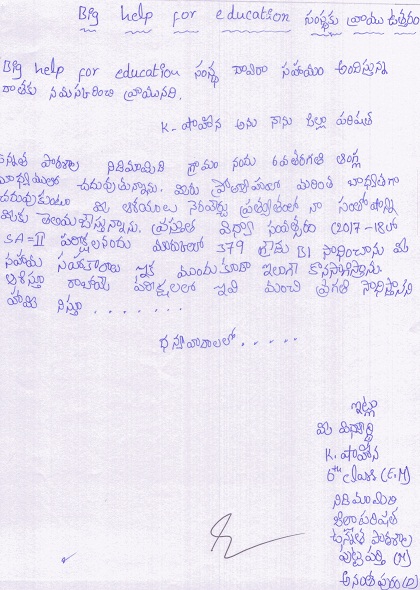 Big help for education సంస్థకు వ్రాయు ఉత్తరం
Big help for education సంస్థ ద్వారా సహాయం అందిస్తున్న
దాతకు నమస్కరించి వ్రాయునది.
K. షాహీన అను నేను జిల్లా పరిషత్
ఉన్నత పాఠశాల నిడిమామిడి గ్రామం నందు 6వతరగతి ఆంగ్ల
మాధ్యమంలో చదువుతున్నాను. మీరు ప్రోత్సాహంలో మరింత బాధ్యతగా
చదువుకుంటూ మీ ఆశయాలు నెరవేర్చు ప్రయత్నంలో నా సంతోషాన్ని
మీకు తెలియచేస్తున్నాను. ప్రస్తుత విద్యా సంవత్సరం (2017-18లో
SA-II పరీక్షలనందు మార్కులలో 379 గ్రేడు B1 సాధించాను మీ
సహాయ సహకారాలు ఇక ముందుకూడా ఇలాగే కొనసాగిస్తారని
ఆశిస్తూ రాబోయే పరీక్షలలో ఇవి మంచి ప్రగతి సాధిస్తానని
హామీ నిస్తూ . . . . . . .
ధన్యవాదాలతో . . . . .
ఇట్లు
మీ విద్యార్థి
K. షాహీన
6th class (E.M)
నిడిమామిడి
జిల్లాపరిషత్
ఉన్నత పాఠశాల
పుట్టపర్తి (M)
అనంతపురం (D)